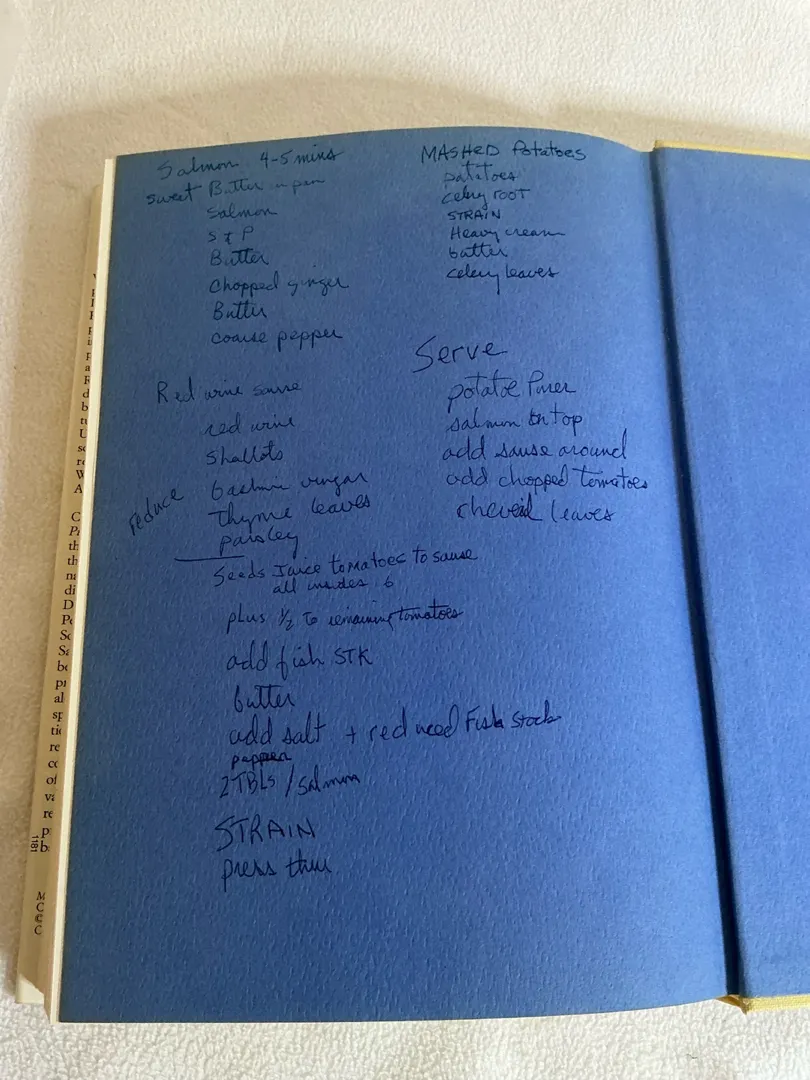 Salmon 4-5 mins
sweet Butter in pan
Salmon
S & P
Butter
Chopped ginger
Butter
coarse pepper
Red wine sause
red wine
Shallots
vingar
reduce
Thyme leaves
parsley
Seeds Juice tomatoes to sause
all insides 6
plus 1/2 to remaining tomatoes
add fish STK
butter
add salt + reduced Fish Stock
pepper
2TBLS / Salmon
STRAIN
press thru
MASHED Potatoes
potatoes
celery root
STRAIN
Heavy cream
butter
celery leaves
Serve
potatoe
salmon on top
add sause around
add chopped tomatoes
leaves
1181